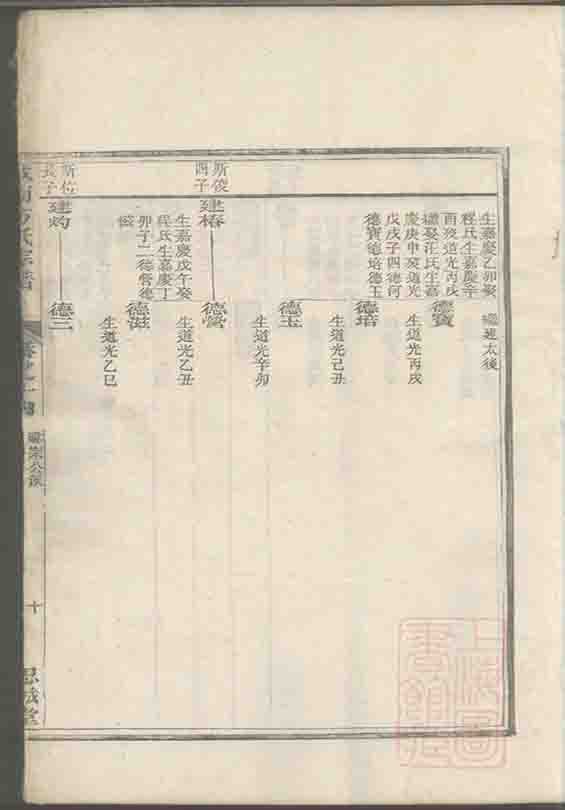 生嘉慶乙卯娶
程氏生嘉慶辛
酉歿道光丙戌
繼娶汪氏生嘉
慶庚申歿道光
戊戌子四德河
德寶德培德玉
繼建太後
德寶
生道光丙戌
德培
生道光己丑
德玉
生道光辛卯
斯俊
四子
建椿
生嘉慶戊午娶
程氏生嘉慶丁
卯子二德營德
滋
德營
生道光乙丑
德滋
生道光乙巳
斯佑
長子
建灼
德三
氏宗譜
卷之
公派
十
思誠堂
上海圖
書館藏